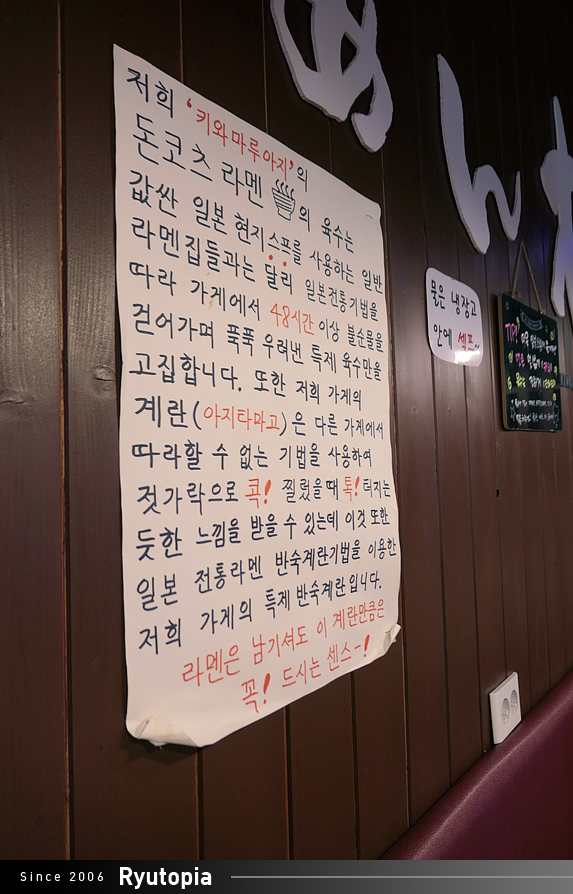 저희 '키와마루아지'의
돈코츠 라멘 의 육수는
값싼 일본 현지스프를 사용하는 일반
라멘집들과는 달리 일본전통기법을
따라 가게에서 48시간 이상 불순물을
걷어가며 푹푹 우려낸 특제 육수만을
고집합니다. 또한 저희 가게의
계란(아지타마고)은 다른 가게에서
따라할 수 없는 기법을 사용하여
젓가락으로 콕! 찔렀을때 톡! 터지는
듯한 느낌을 받을 수 있는데 이것 또한
일본 전통라멘 반숙계란기법을 이용한
저희 가게의 특제 반숙계란입니다.
라멘은 남기셔도 이 계란만큼은
꼭! 드시는 센스~!
めん
물은 냉장고
안에 셀프
TIP!
Since 2006 Ryutopia